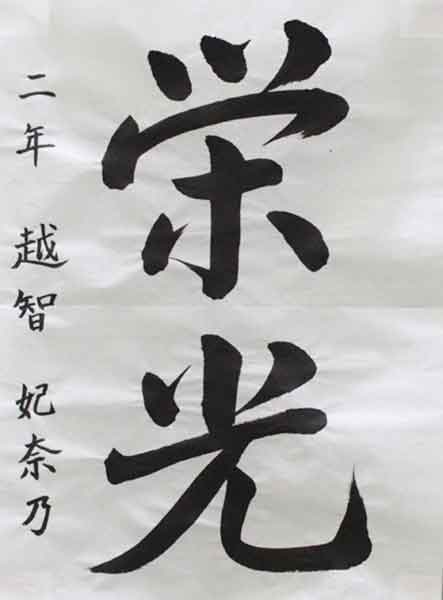 栄光
二年 越智 妃奈乃